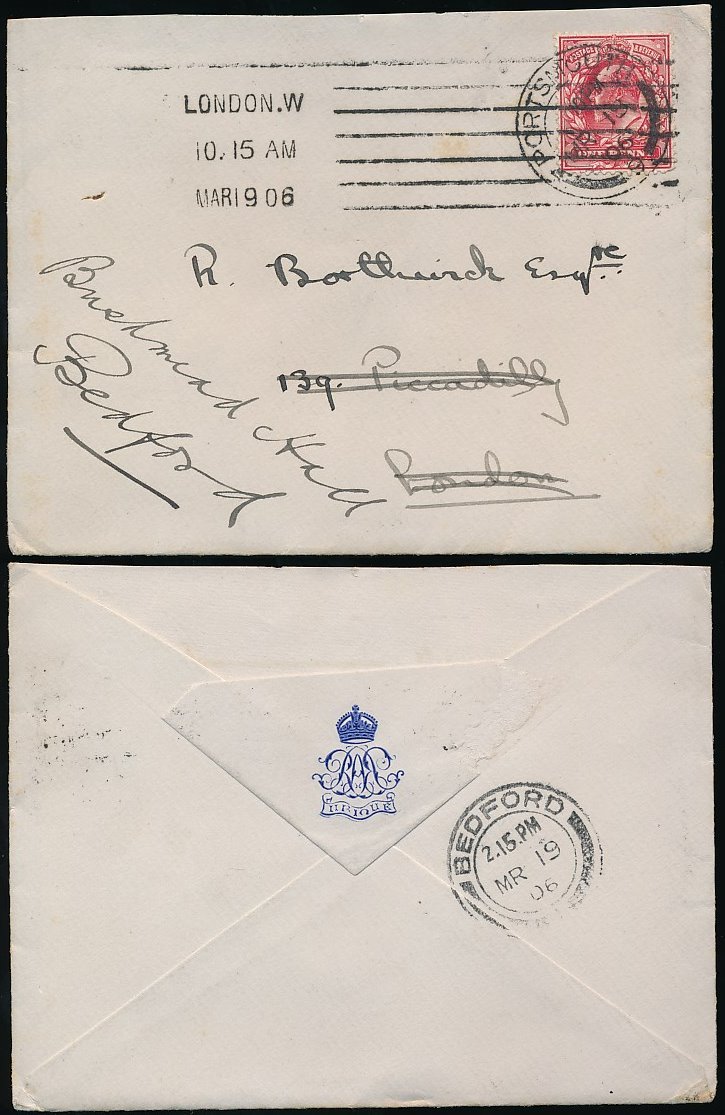 LONDON.W
10.15 AM
MAR 19 06
PORTSM
POSTAGE & REVENUE
ONE PENNY
R. Borthwick Esqre.
139. Piccadilly
London
Bushmead Hall
Bedford
UBIQUE
BEDFORD
2.15.PM
MR 19
06